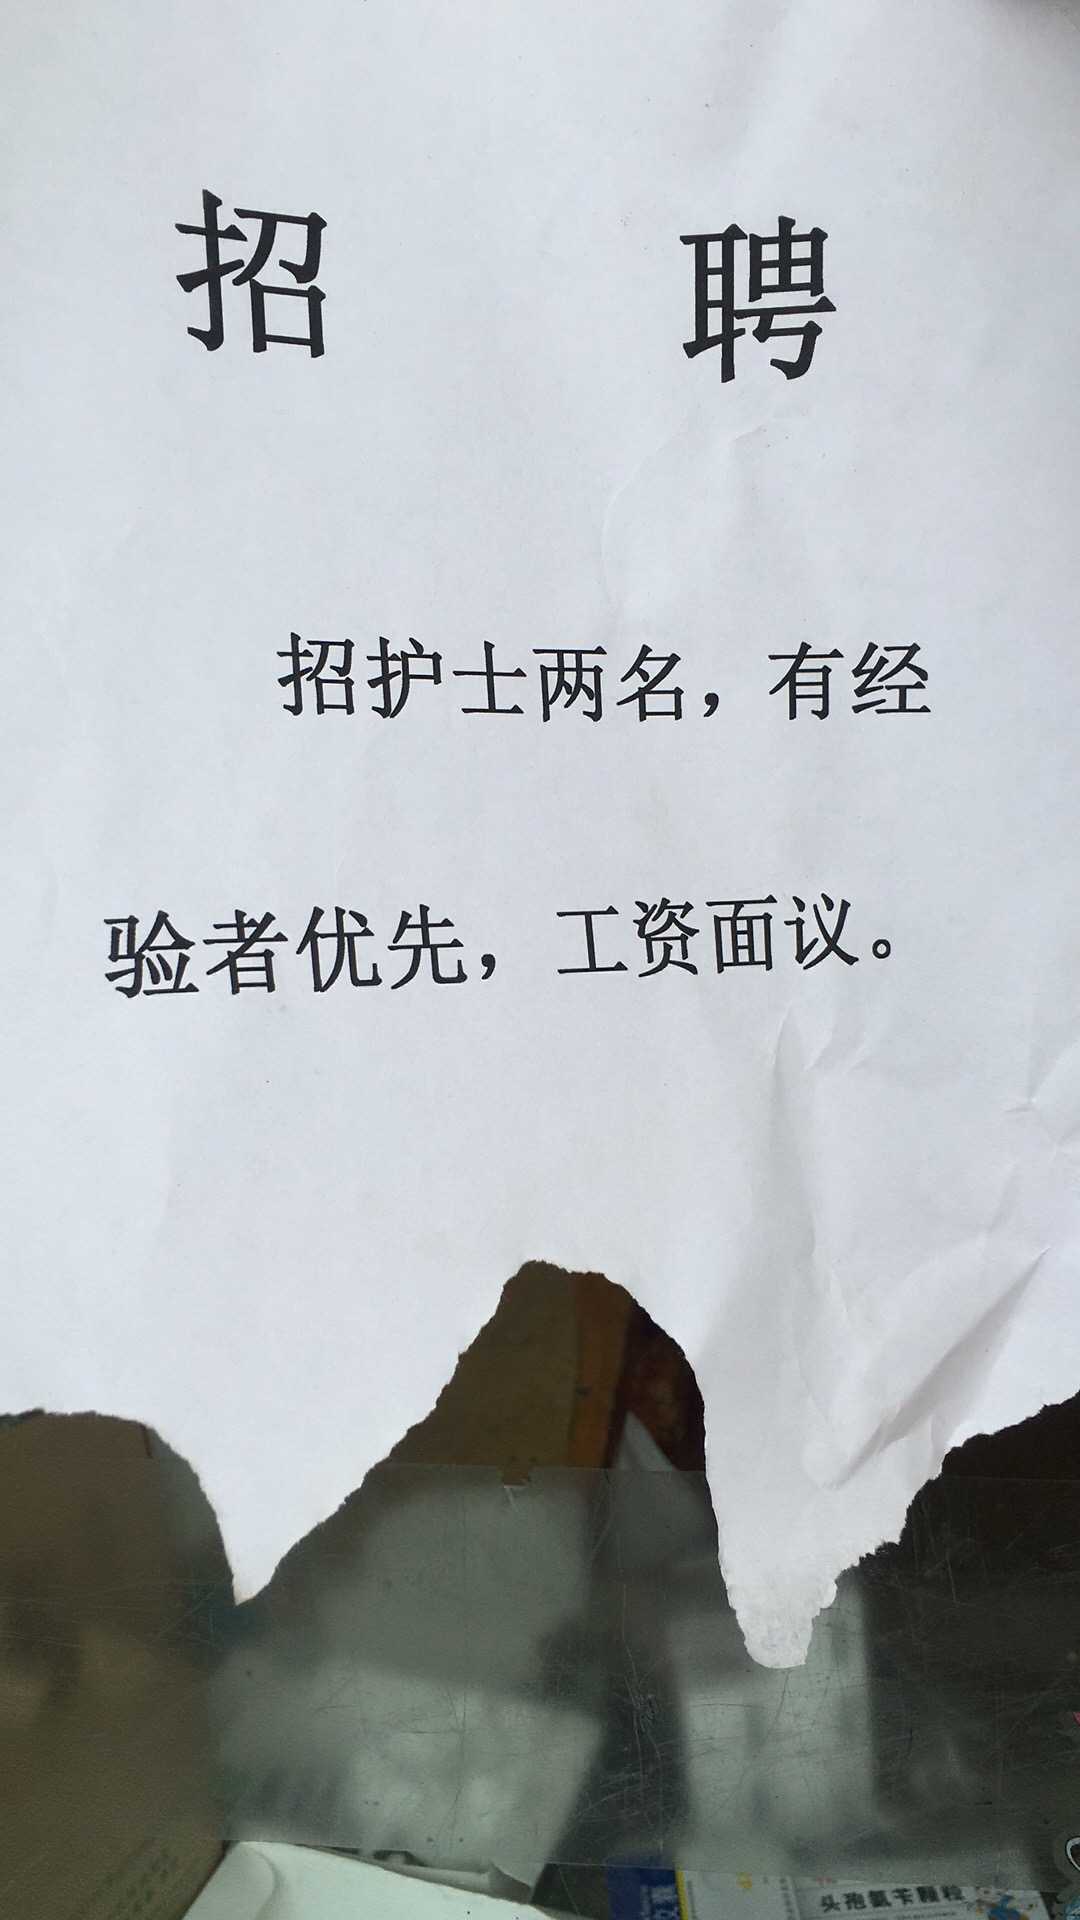 招 聘
招护士两名，有经
验者优先，工资面议。
头孢氨苄颗粒